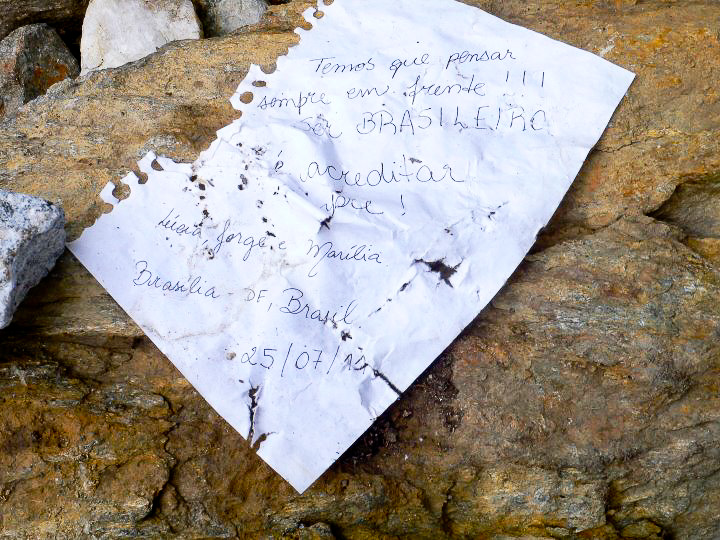 Temos que pensar
sempre em frente !!!
ser BRASILEIRO
é acreditar
pre !
Lúcia, Jorge e Marília
Brasília - DF, Brasil
25/07/10